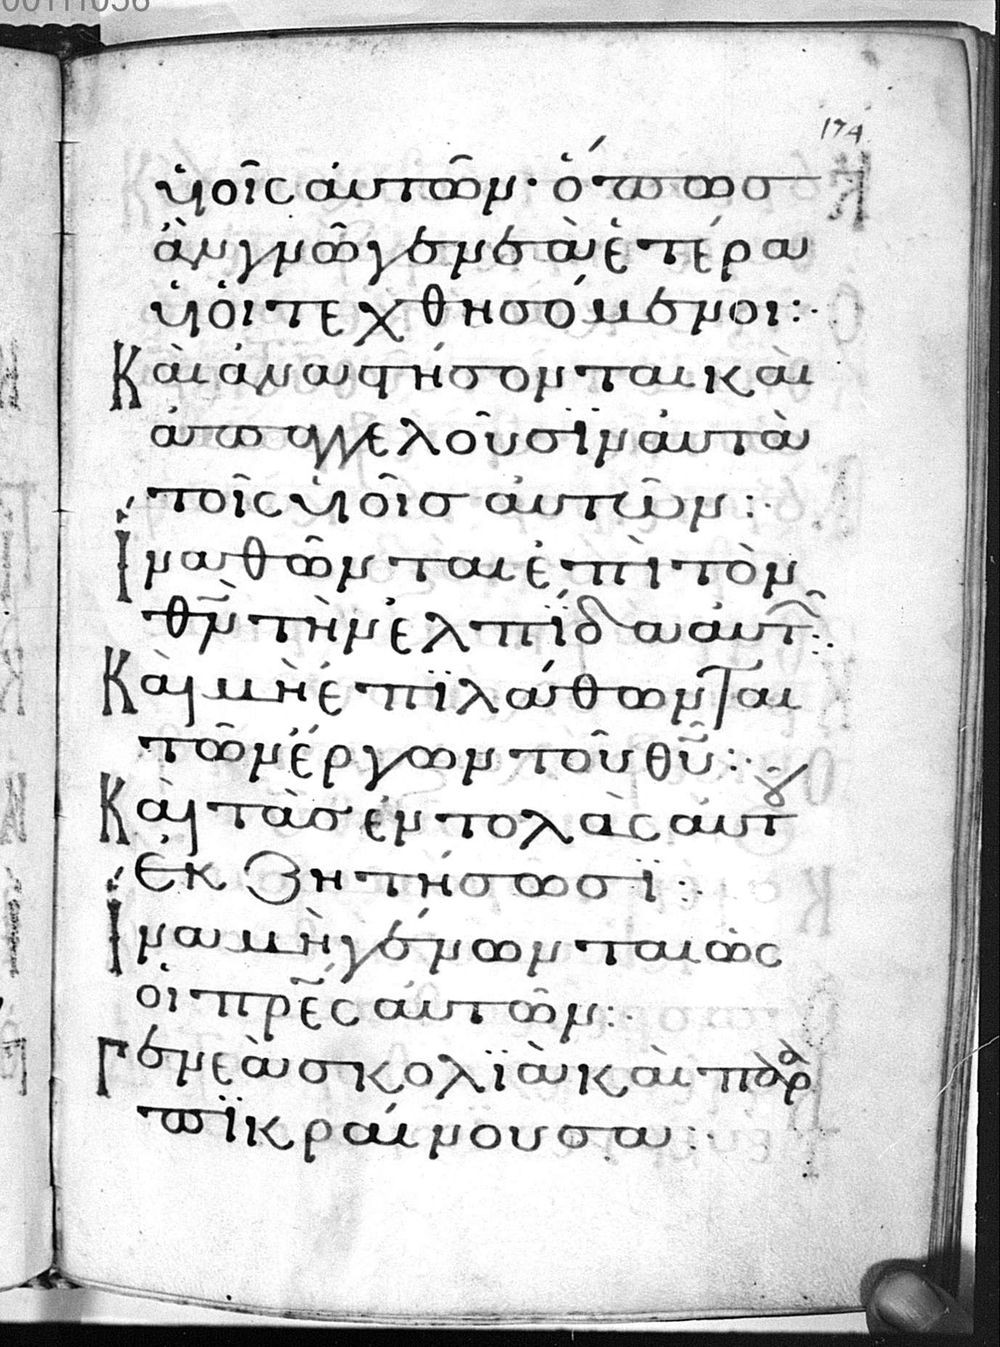 00111056
174
ὑιοῖς ἀυτῶν· ὅπωσ
ἂν γνῶ γενεὰ ἑτέρα
ὑιὁι τεχθησόμενοι:·
Κὰι ἀναστήσονται κὰι
ἀπαγγελοῦσϊν ἀυτὰ
τοῖς ὑιοῖσ ἀυτῶν:·
Ἵνα θῶνται ἐπὶ τὸν
θν̄ τὴν ἐλπίδα ἀυτ:·
Κὰι μὴ ἐπϊλάθωνται
τῶν ἔργων τοῦ θῡ:·
Κὰι τὰσ ἐντολὰς ἀυτ
ἐκζητήσωσϊ:·
Ἵνα μὴ γένωνται ὡς
ὁι πρ̄ες ἀυτῶν:·
Γενεὰ σκολϊὰ κὰι παρα
πϊκράινουσα:·